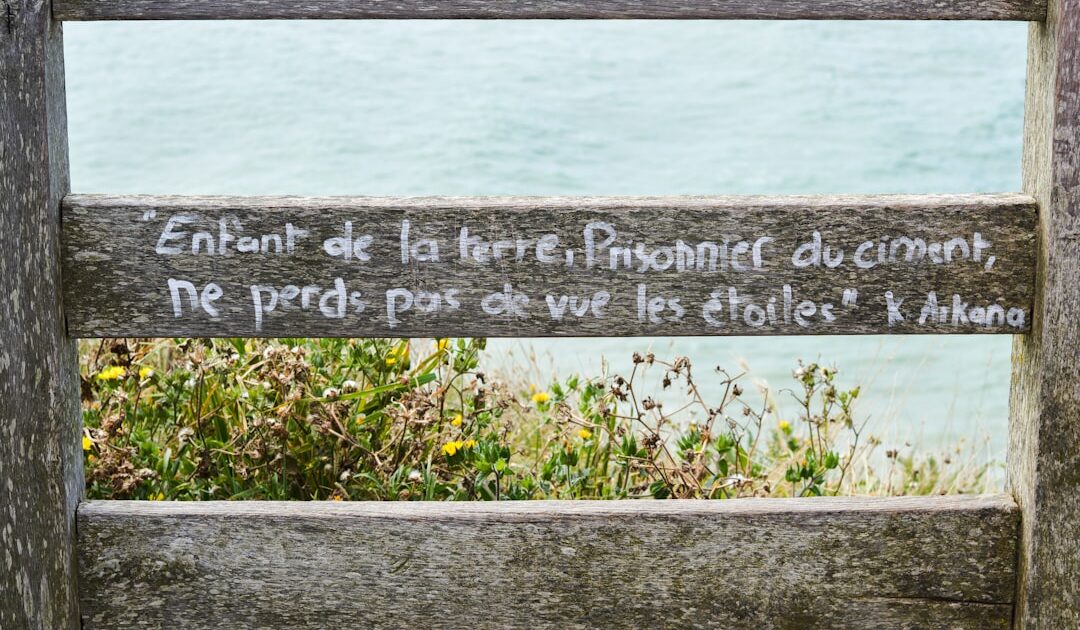 "Enfant de la terre, Prisonnier du ciment,
ne perds pas de vue les étoiles" K. Arkana